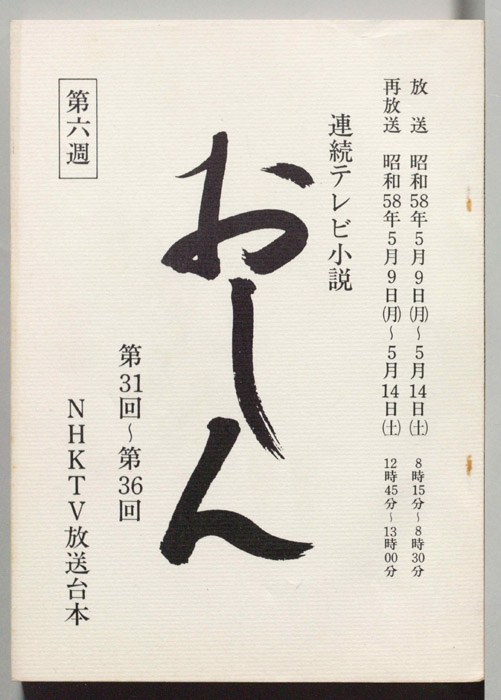 放　送　昭和58年5月9日(月)〜5月14日(土)　8時15分〜8時30分
再放送　昭和58年5月9日(月)〜5月14日(土)　12時45分〜13時00分
連続テレビ小説
おしん
第31回〜第36回
第六週
NHKTV放送台本